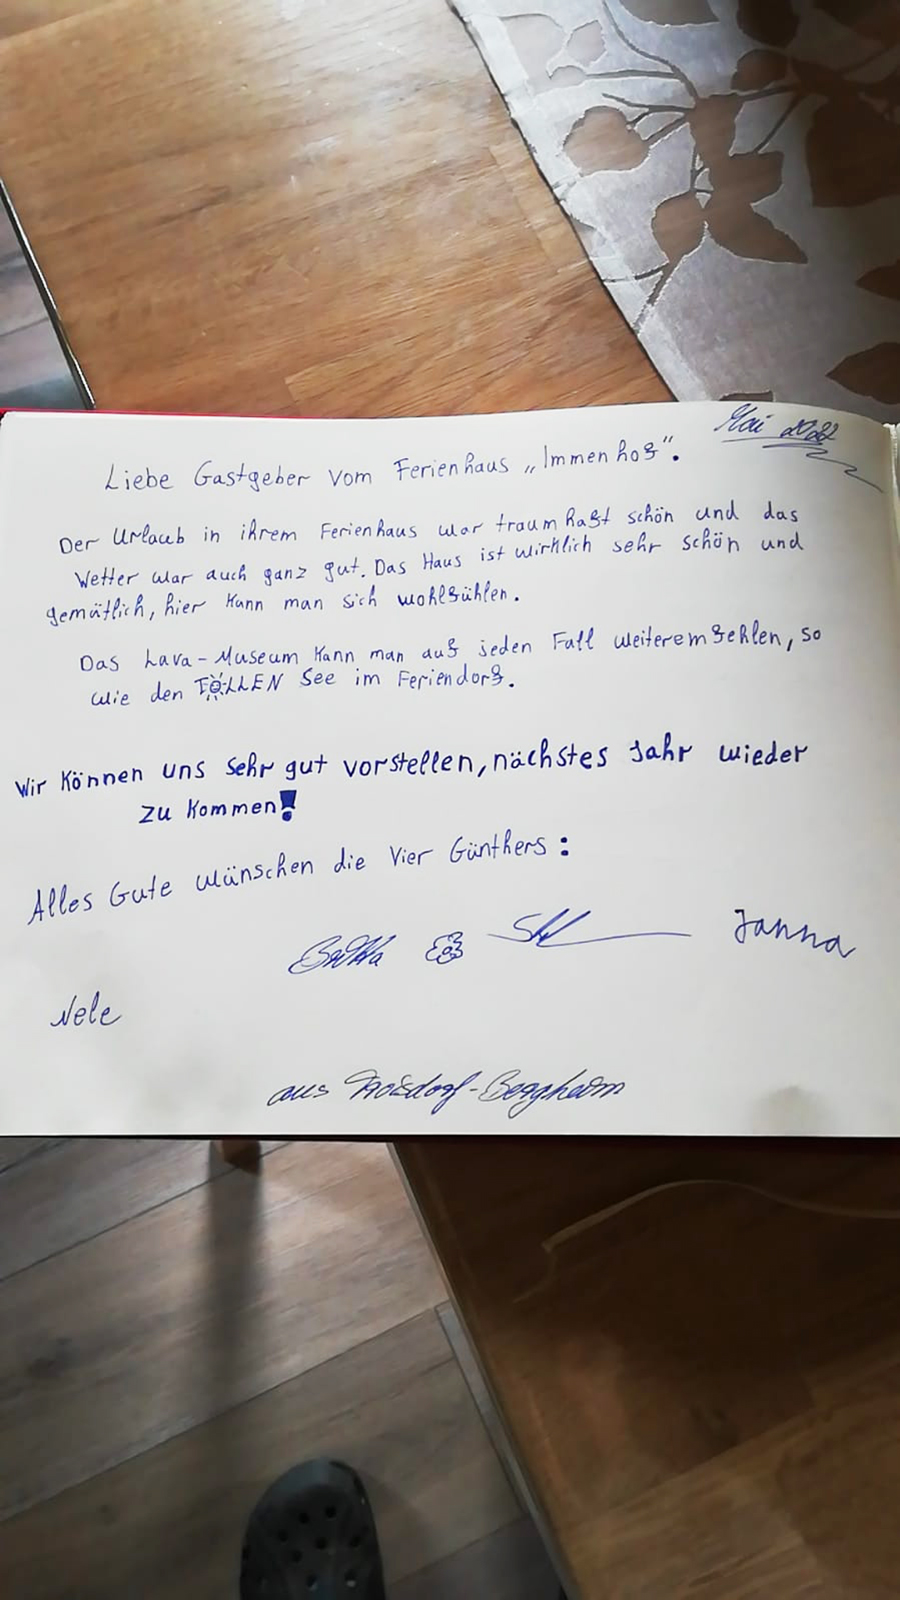 Mai 2022
Liebe Gastgeber vom Ferienhaus „Immenhof".
Der Urlaub in ihrem Ferienhaus war traumhaft schön und das
Wetter war auch ganz gut. Das Haus ist wirklich sehr schön und
gemütlich, hier kann man sich wohlfühlen.
Das Lava-Museum kann man auf jeden Fall weiterempfehlen, so
wie den TOLLEN See im Feriendorf.
Wir können uns sehr gut vorstellen, nächstes Jahr wieder
zu kommen!
Alles Gute wünschen die Vier Günthers:
Janna
Nele
aus Troisdorf-Bergheim